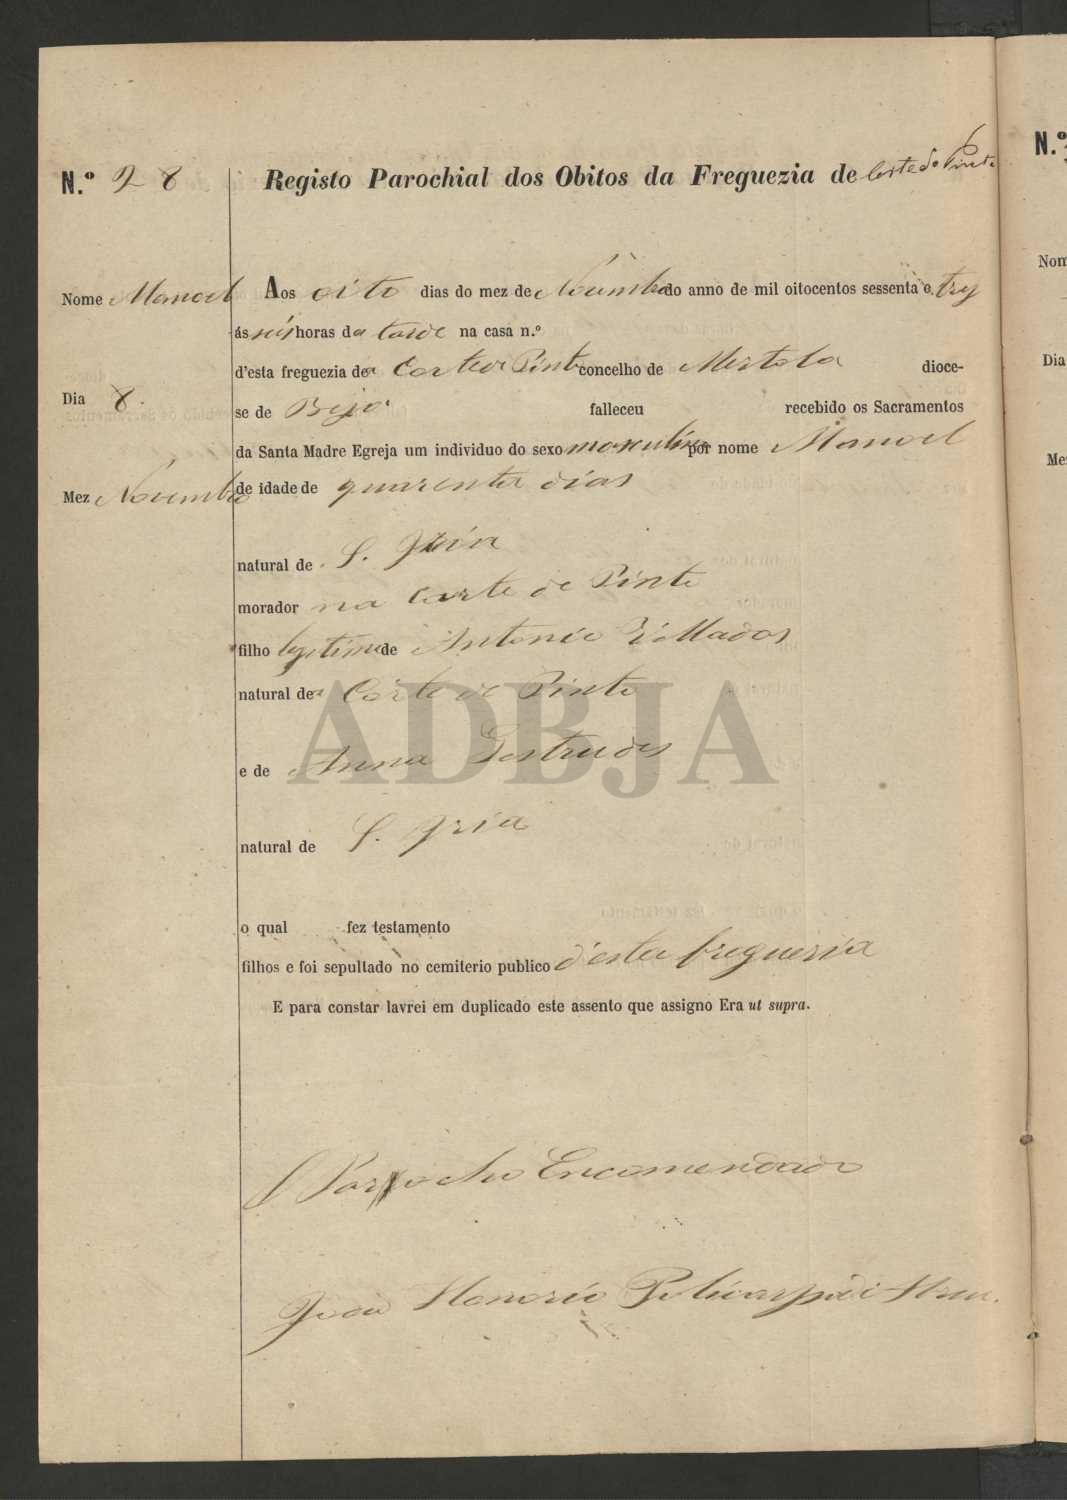 N.º 28
Registo Parochial dos Obitos da Freguezia de Corte do Pinto
Nome Manoel
Dia 8.
Mez Novembro
Aos oito dias do mez de Novembro do anno de mil oitocentos sessenta e trez
ás seis horas da tarde na casa n.º
d'esta freguezia de Corte de Pinto concelho de Mertola dioce-
se de Beja falleceu recebido os Sacramentos
da Santa Madre Egreja um individuo do sexo masculino por nome Manoel
de idade de quarenta dias
natural de S. Iria
morador na Corte de Pinto
filho legitimo de Antonio
natural de Corte de Pinto
e de Anna Gertrudes
natural de S. Iria
o qual fez testamento
filhos e foi sepultado no cemiterio publico d'esta freguezia
E para constar lavrei em duplicado este assento que assigno Era ut supra.
O Parrocho Encomendado
João Honorio Policarpo
ADBJA
N.º
Nom
Dia
Me